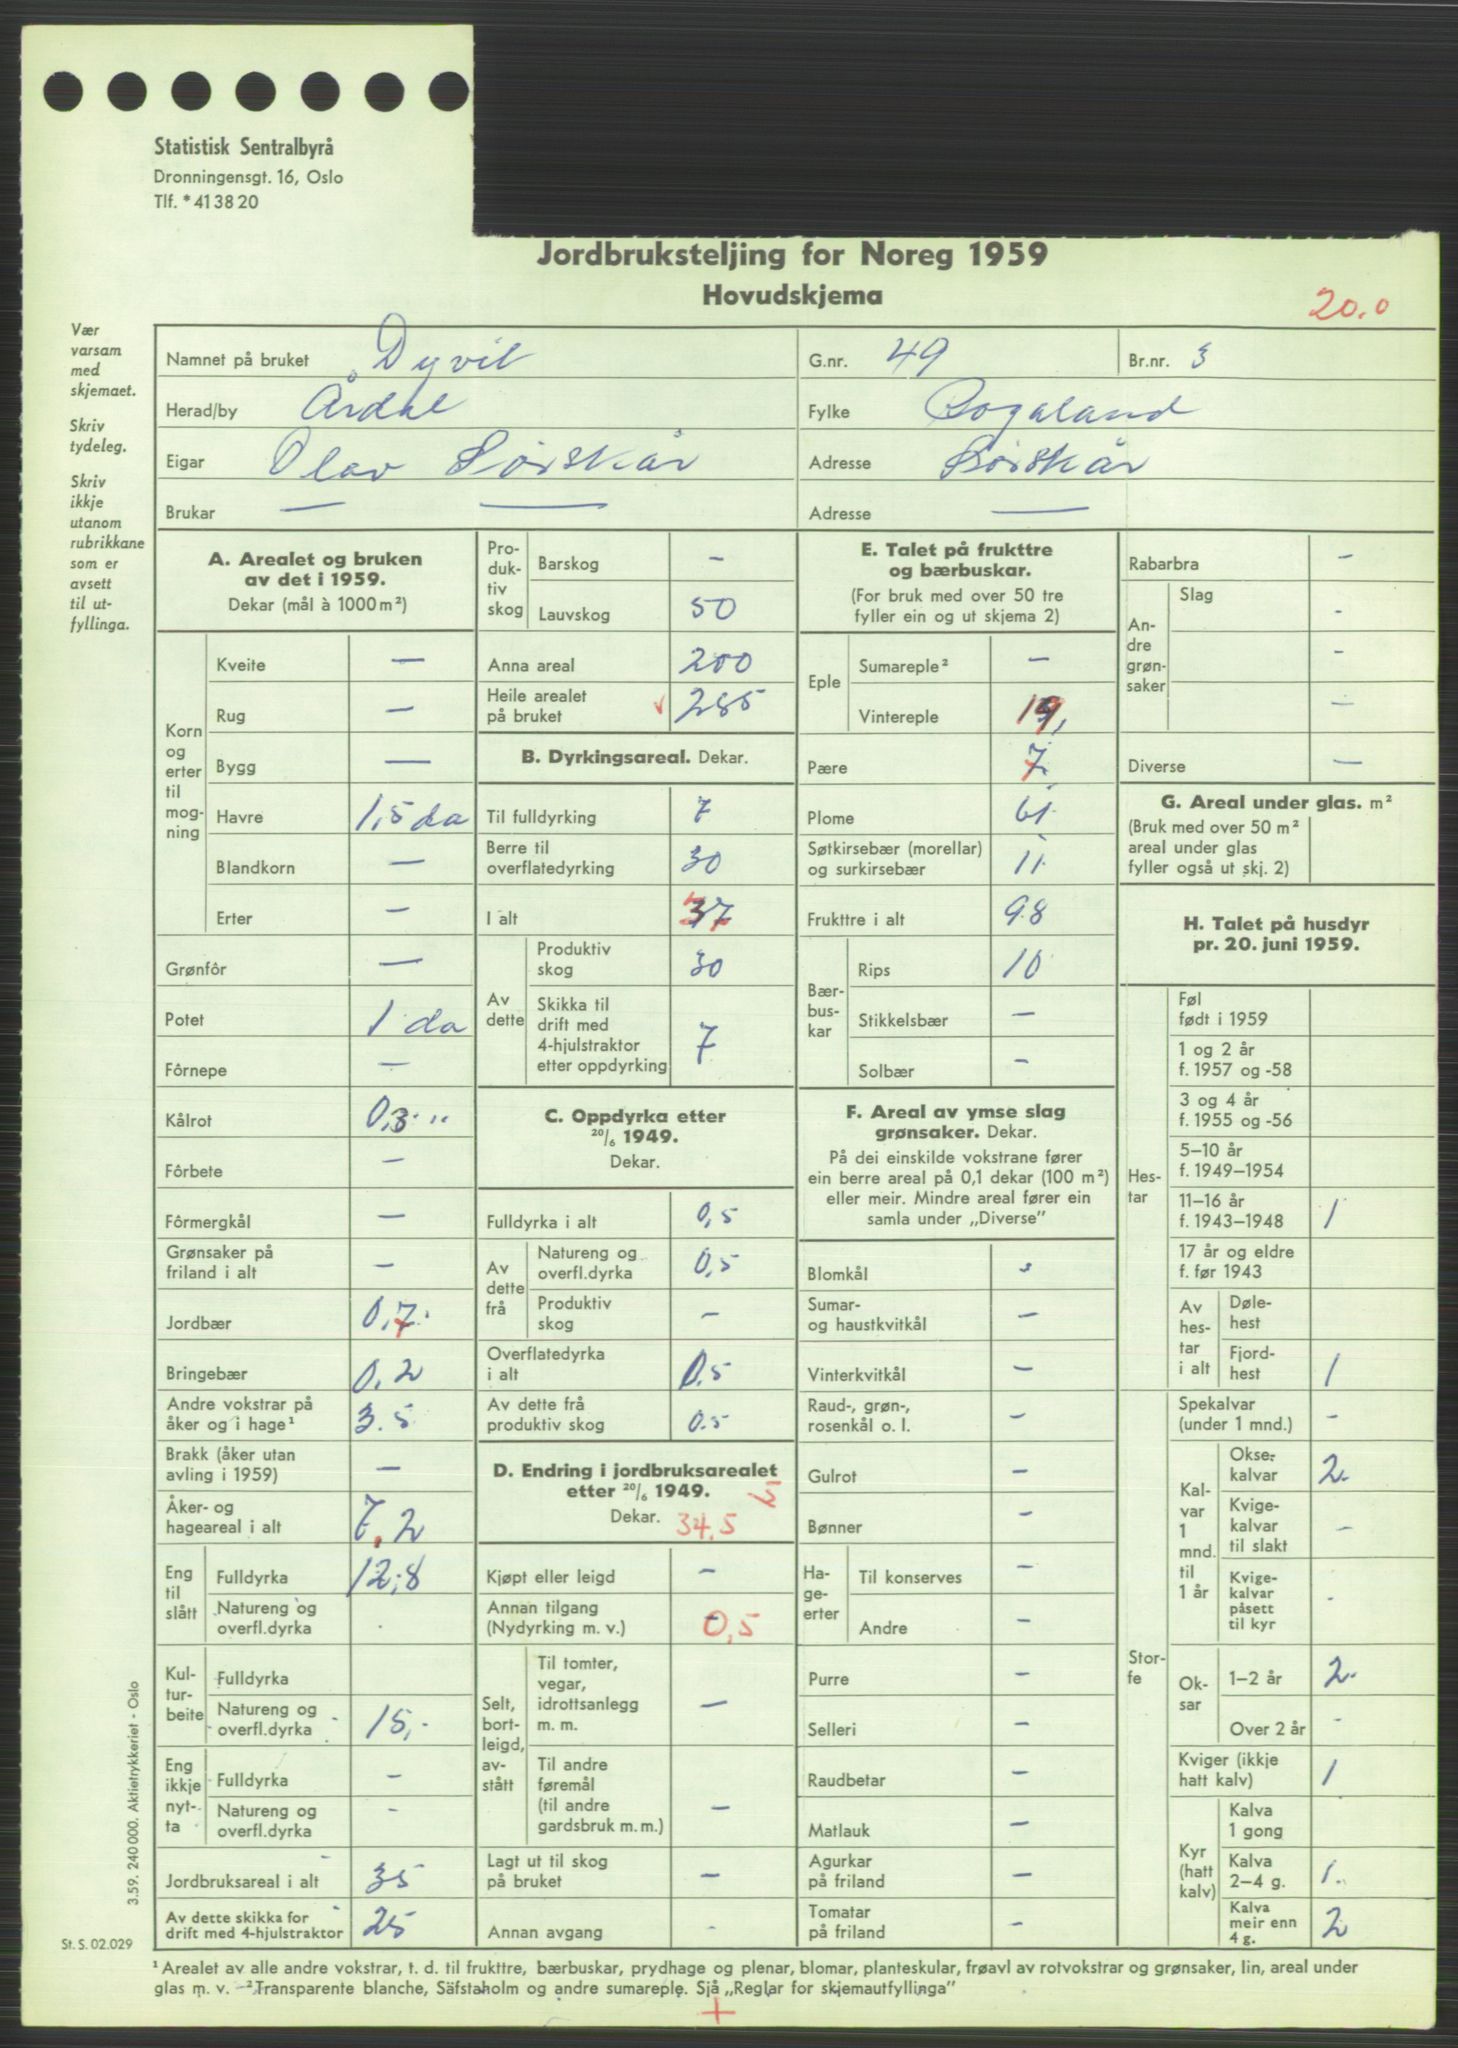 Statistisk Sentralbyrå
Dronningensgt. 16, Oslo
Tlf. * 41 38 20
Jordbruksteljing for Noreg 1959
Hovudskjema
20.0
Vær
varsam
med
skjemaet.
Skriv
tydeleg.
Skriv
ikkje
utanom
rubrikkane
som er
avsett
til ut-
fyllinga.
Namnet på bruket Dyvik G.nr. 49 Br.nr. 3
Herad/by Årdal Fylke Rogaland
Eigar Olav Sörskår Adresse Sörskår
Brukar — — Adresse —
A. Arealet og bruken
av det i 1959.
Dekar (mål à 1000 m²)
Korn
og
erter
til
mog-
ning
Kveite —
Rug —
Bygg —
Havre 1,5 da
Blandkorn —
Erter —
Grønfôr —
Potet 1 da
Fôrnepe —
Kålrot 0,3 "
Fôrbete —
Fôrmergkål —
Grønsaker på
friland i alt —
Jordbær 0,7
Bringebær 0,2
Andre vokstrar på
åker og i hage¹ 3.5
Brakk (åker utan
avling i 1959) —
Åker- og
hageareal i alt 7,2
Eng
til
slått
Fulldyrka 12,8
Natureng og
overfl.dyrka
Kul-
tur-
beite
Fulldyrka
Natureng og
overfl.dyrka 15,-
Eng
ikkje
nyt-
ta
Fulldyrka -
Natureng og
overfl.dyrka -
Jordbruksareal i alt 35
Av dette skikka for
drift med 4-hjulstraktor 25
Pro-
duk-
tiv
skog
Barskog —
Lauvskog 50
Anna areal 200
Heile arealet
på bruket 285
B. Dyrkingsareal. Dekar.
Til fulldyrking 7
Berre til
overflatedyrking 30
I alt 37
Av
dette
Produktiv
skog 30
Skikka til
drift med
4-hjulstraktor
etter oppdyrking 7
C. Oppdyrka etter
20/6 1949.
Dekar.
Fulldyrka i alt 0,5
Av
dette
frå
Natureng og
overfl.dyrka 0,5
Produktiv
skog —
Overflatedyrka
i alt 0.5
Av dette frå
produktiv skog 0.5
D. Endring i jordbruksarealet
etter 20/6 1949.
Dekar. 34,5
Kjøpt eller leigd —
Annan tilgang
(Nydyrking m. v.) 0,5
Selt,
bort-
leigd,
av-
stått
Til tomter,
vegar,
idrottsanlegg
m. m. —
Til andre
føremål
(til andre
gardsbruk m. m.) —
Lagt ut til skog
på bruket —
Annan avgang -
E. Talet på frukttre
og bærbuskar.
(For bruk med over 50 tre
fyller ein og ut skjema 2)
Eple
Sumareple² —
Vintereple 19,
Pære 7
Plome 61
Søtkirsebær (morellar)
og surkirsebær 11
Frukttre i alt 98
Bær-
bus-
kar
Rips 10
Stikkelsbær —
Solbær —
F. Areal av ymse slag
grønsaker. Dekar.
På dei einskilde vokstrane fører
ein berre areal på 0,1 dekar (100 m²)
eller meir. Mindre areal fører ein
samla under „Diverse"
Blomkål -
Sumar-
og haustkvitkål —
Vinterkvitkål —
Raud-, grøn-,
rosenkål o. l. —
Gulrot —
Bønner —
Ha-
ge-
erter
Til konserves —
Andre —
Purre —
Selleri —
Raudbetar —
Matlauk —
Agurkar
på friland —
Tomatar
på friland —
Rabarbra —
An-
dre
grøn-
saker
Slag
-
-
—
Diverse —
G. Areal under glas. m²
(Bruk med over 50 m²
areal under glas
fyller også ut skj. 2)
H. Talet på husdyr
pr. 20. juni 1959.
Hes-
tar
Føl
født i 1959
1 og 2 år
f. 1957 og -58
3 og 4 år
f. 1955 og -56
5–10 år
f. 1949–1954
11–16 år
f. 1943–1948 1
17 år og eldre
f. før 1943
Av
hes-
tar
i alt
Døle-
hest
Fjord-
hest 1
Stor-
fe
Spekalvar
(under 1 mnd.) -
Kal-
var
1
mnd.
til
1 år
Okse-
kalvar 2
Kvige-
kalvar
til slakt -
Kvige-
kalvar
påsett
til kyr -
Ok-
sar
1–2 år 2
Over 2 år -
Kviger (ikkje
hatt kalv) 1
Kyr
(hatt
kalv)
Kalva
1 gong
Kalva
2–4 g. 1
Kalva
meir enn
4 g. 2
3.59. 240 000. Aktietrykkeriet - Oslo
St. S. 02.029
¹ Arealet av alle andre vokstrar, t. d. til frukttre, bærbuskar, prydhage og plenar, blomar, planteskular, frøavl av rotvokstrar og grønsaker, lin, areal under
glas m. v. ² Transparente blanche, Säfstaholm og andre sumareple. Sjå „Reglar for skjemautfyllinga"
+